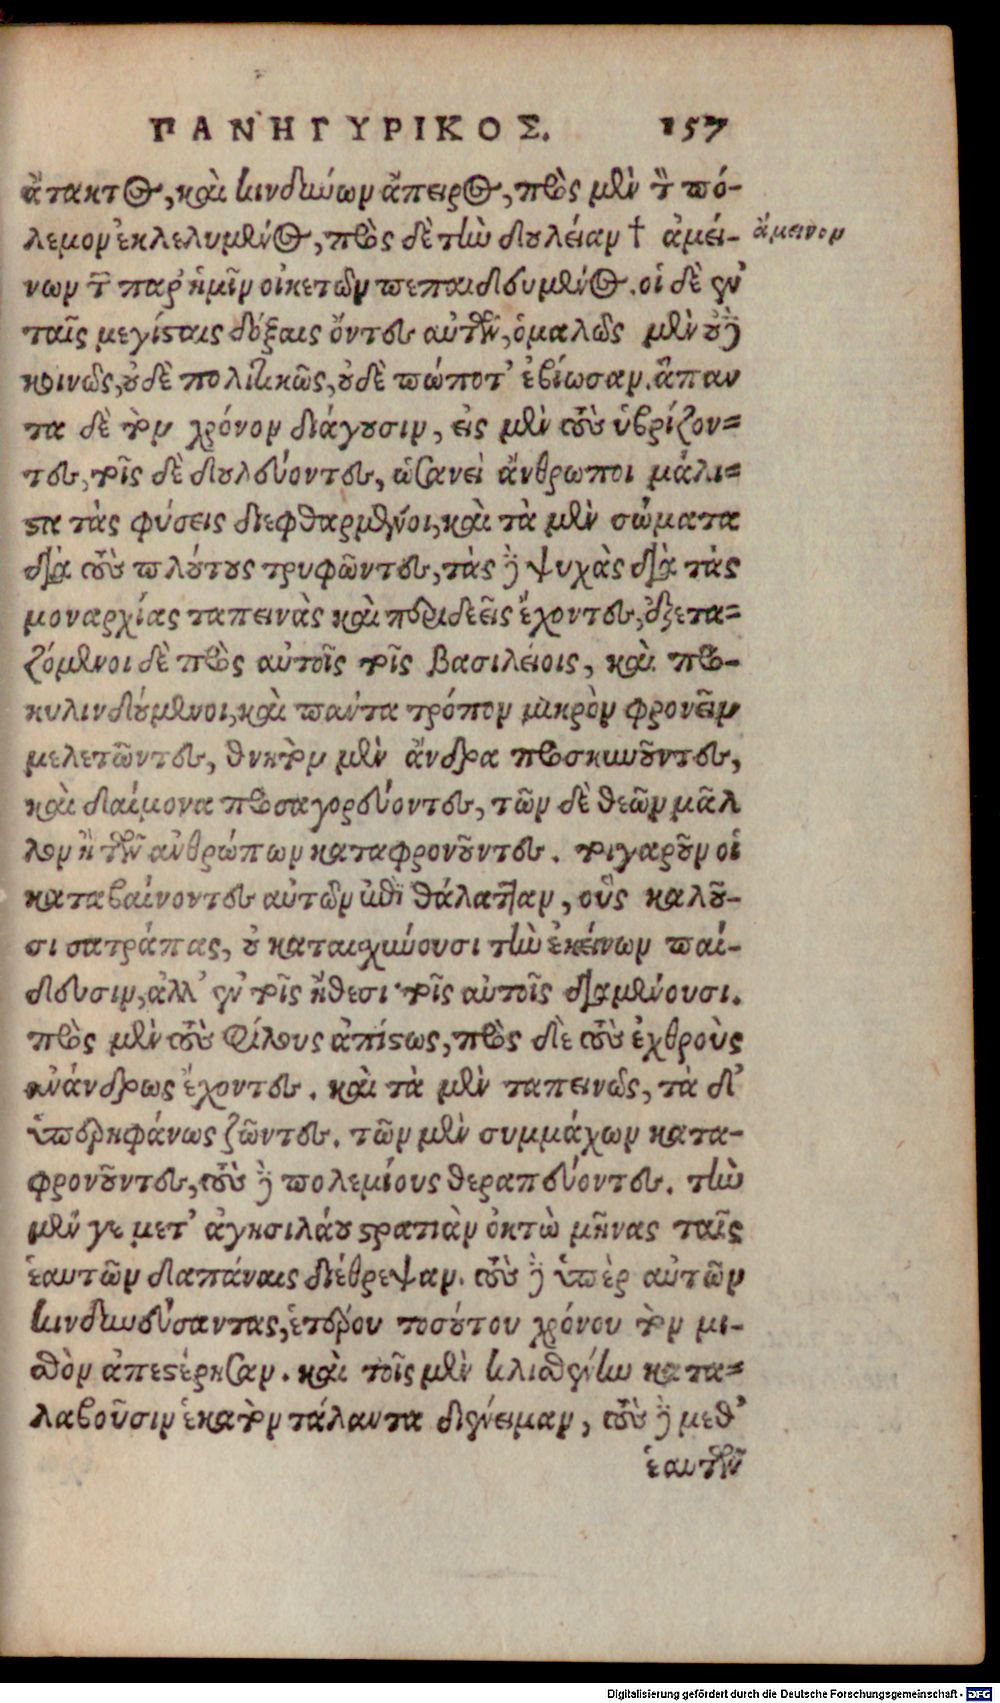 ΠΑΝΗΓΥΡΙΚΟΣ. 157
ἄτακτος, καὶ κινδύνων ἄπειρος, πρὸς μὲν τ πό-
λεμον ἐκλελυμένος, πρὸς δὲ τὴν δουλείαν † ἀμεί-
ἄμεινον
νων τ παρ' ἡμῖν οἰκετῶν πεπαιδευμένος. οἱ δὲ ἐν
ταῖς μεγίσταις δόξαις ὄντες αὐτῶν, ὁμαλῶς μὲν οὐδὲ
κοινῶς, οὐδὲ πολιτικῶς, οὐδὲ πώποτ' ἐβίωσαν. ἅπαν
τα δὲ τὸν χρόνον διάγουσιν, εἰς μὲν τοὺς ὑβρίζον=
τες, τοῖς δὲ δουλεύοντες, ὡσανεὶ ἄνθρωποι μάλι=
στα τὰς φύσεις διεφθαρμένοι, καὶ τὰ μὲν σώματα
διὰ τοὺς πλούτους τρυφῶντες, τὰς δὲ ψυχὰς διὰ τὰς
μοναρχίας ταπεινὰς καὶ περιδεεῖς ἔχοντες, ἐξετα=
ζόμενοι δὲ πρὸς αὐτοῖς τοῖς βασιλείοις, καὶ προ-
κυλινδούμενοι, καὶ πάντα τρόπον μικρὸν φρονεῖν
μελετῶντες, θνητὸν μὲν ἄνδρα προσκυνοῦντες,
καὶ δαίμονα προσαγορεύοντες, τῶν δὲ θεῶν μᾶλ
λον ἢ τῶν ἀνθρώπων καταφρονοῦντες. τοιγαροῦν οἱ
καταβαίνοντες αὐτῶν ἐπὶ θάλατταν, οὓς καλοῦ-
σι σατράπας, οὐ καταισχύνουσι τὴν ἐκείνων παί-
δευσιν, ἀλλ' ἐν τοῖς ἤθεσι τοῖς αὐτοῖς διαμένουσι.
πρὸς μὲν τοὺς φίλους ἀπίστως, πρὸς δὲ τοὺς ἐχθροὺς
ἀνάνδρως ἔχοντες. καὶ τὰ μὲν ταπεινῶς, τὰ δ'
ὑπερηφάνως ζῶντες. τῶν μὲν συμμάχων κατα-
φρονοῦντες, τοὺς δὲ πολεμίους θεραπεύοντες. τὴν
μέν γε μετ' ἀγησιλάου στρατιὰν ὀκτὼ μῆνας ταῖς
ἑαυτῶν δαπάναις διέθρεψαν. τοὺς δὲ ὑπὲρ αὐτῶν
κινδυνεύσαντας, ἑτέρου τοσούτου χρόνου τὸν μι-
σθὸν ἀπεστέρησαν. καὶ τοῖς μὲν κισθήνην κατα=
λαβοῦσιν ἑκατὸν τάλαντα διένειμαν, τοὺς δὲ μεθ'
ἑαυτῶν
Digitalisierung gefördert durch die Deutsche Forschungsgemeinschaft - DFG